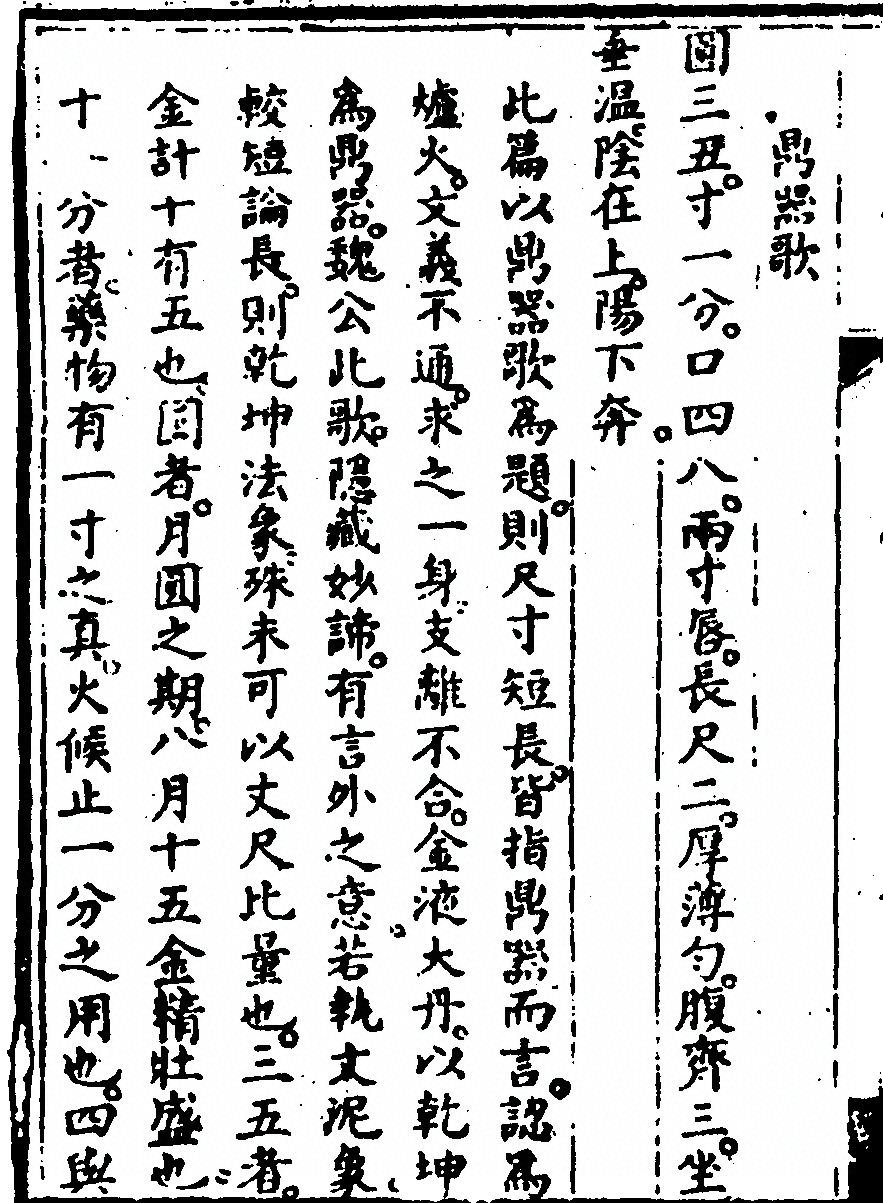 鼎噐歌
圓三五寸一分口四八兩寸唇長尺二厚薄勻腹齊三坐
垂温陰在上陽下奔
此篇以鼎噐歌爲題則尺寸短長皆指鼎噐而言認爲
爐火文義不通求之一身支離不合金液大丹以乾坤
爲鼎器魏公此歌隱藏妙諦有言外之意若執文泥象
較短論長則乾坤法象殊未可以丈尺比量也三五者
金計十有五也圓者月圓之期八月十五金精壯盛也
十一分者藥物有一寸之真火候止一分之用也四與